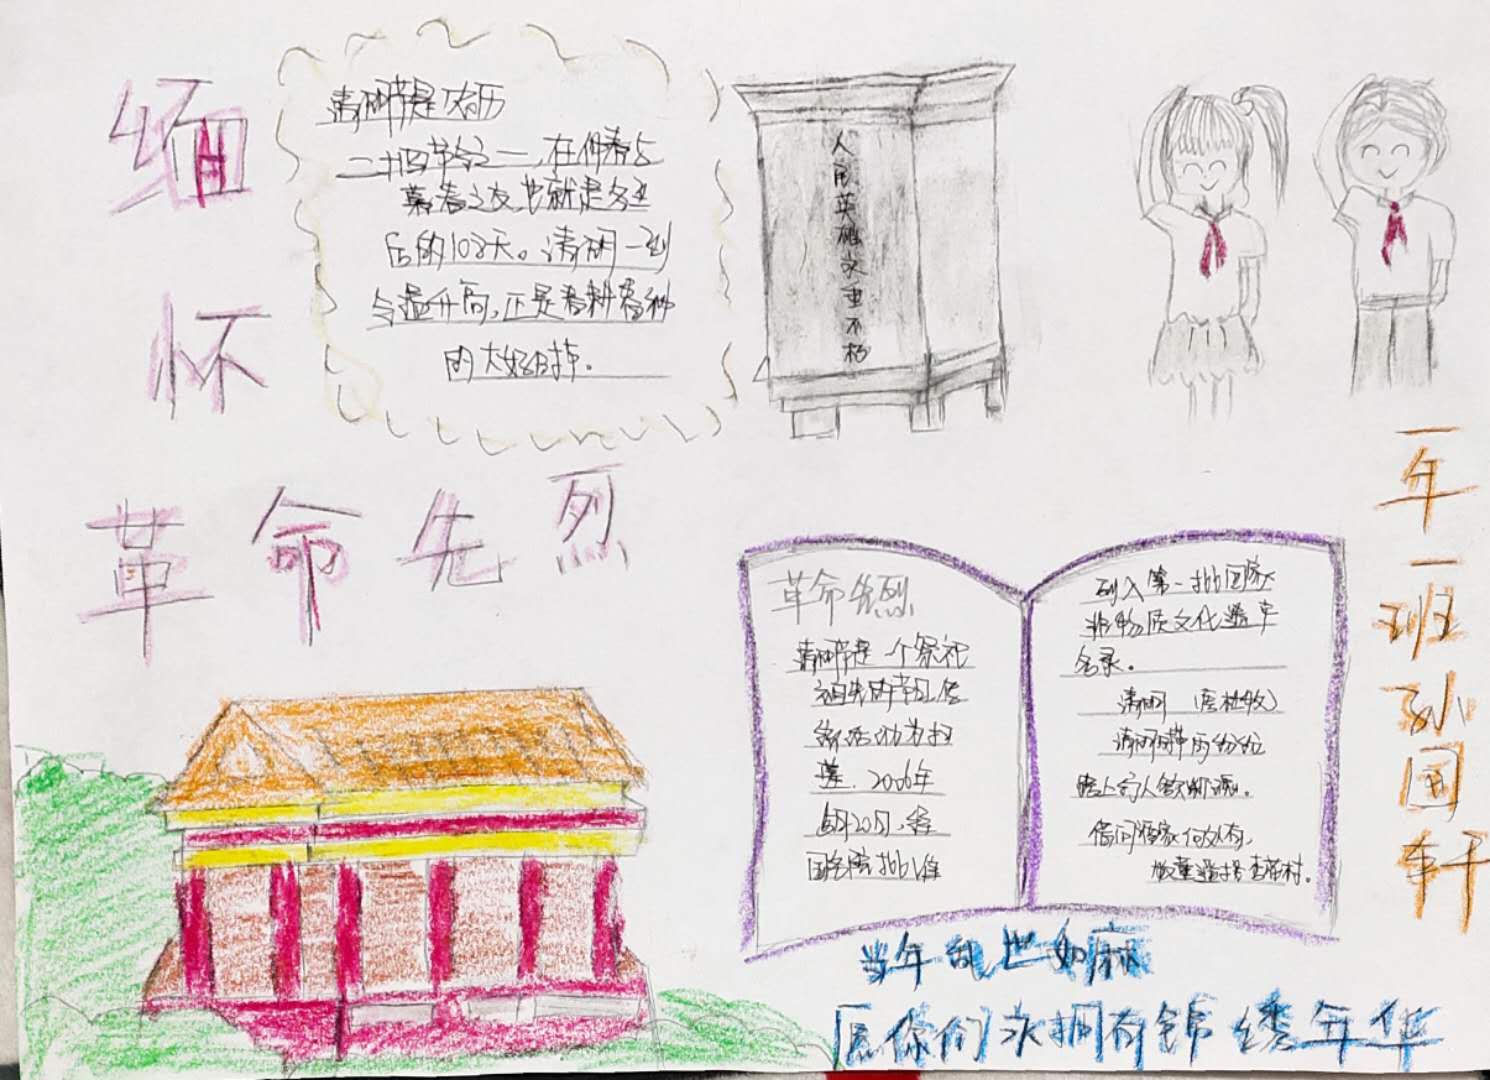 缅
怀
革命先烈
清明节是农历
二十四节气之一,在仲春与
暮春之交,也就是冬至
后的108天。清明一到
气温升高,正是春耕春种
的大好时节。
人民英雄永垂不朽
革命先烈
清明节是一个祭祀
祖先的节日,传
统活动为扫
墓。2006年
5月20日,经
国务院批准
列入第一批国家
非物质文化遗产
名录。
清明 (唐杜牧)
清明时节雨纷纷
路上行人欲断魂。
借问酒家何处有,
牧童遥指杏花村。
一年一班孙国轩
当年乱世如麻
愿你们永拥有锦绣年华